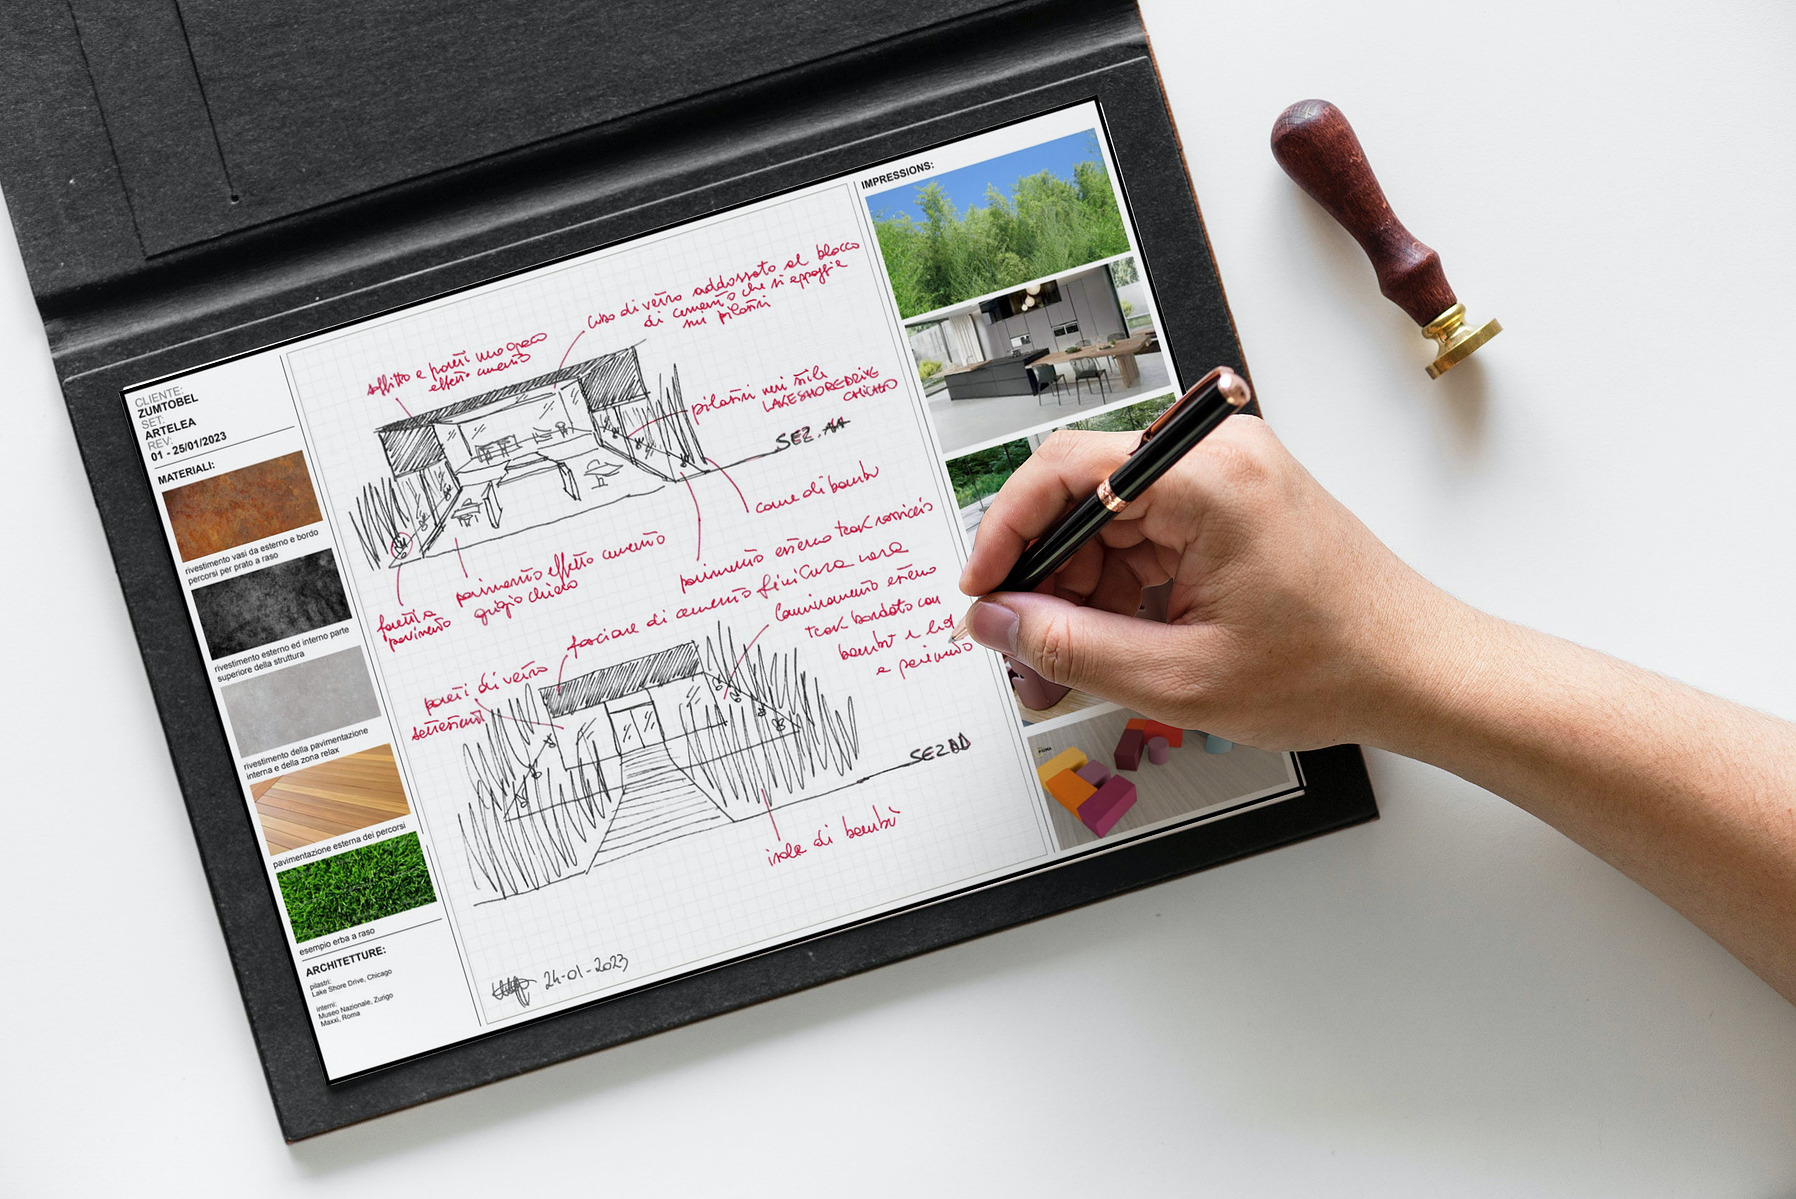 CLIENTE:
ZUMTOBEL
SET:
ARTELEA
REV:
01 - 25/01/2023
MATERIALI:
rivestimento vasi da esterno e bordo
percorsi per prato a raso
rivestimento esterno ed interno parte
superiore della struttura
rivestimento della pavimentazione
interna e della zona relax
pavimentazione esterna dei percorsi
esempio erba a raso
ARCHITETTURE:
pilastri:
Lake Shore Drive, Chicago
interni:
Museo Nazionale, Zurigo
Maxxi, Roma
soffitto e pareti
effetto cemento
di vetro addossato al blocco
di cemento che si appoggia
sui pilastri
pilastri nello stile
LAKE SHORE DRIVE
CHICAGO
SEZ. AA
canne di bambù
pavimento esterno teak
faretti a
pavimento
pavimento effetto cemento
grigio chiaro
di cemento finitura
camminamento esterno
teak bordato con
bambù e
a pavimento
pareti di vetro
SEZ BB
isole di bambù
24-01-2023
IMPRESSIONS: